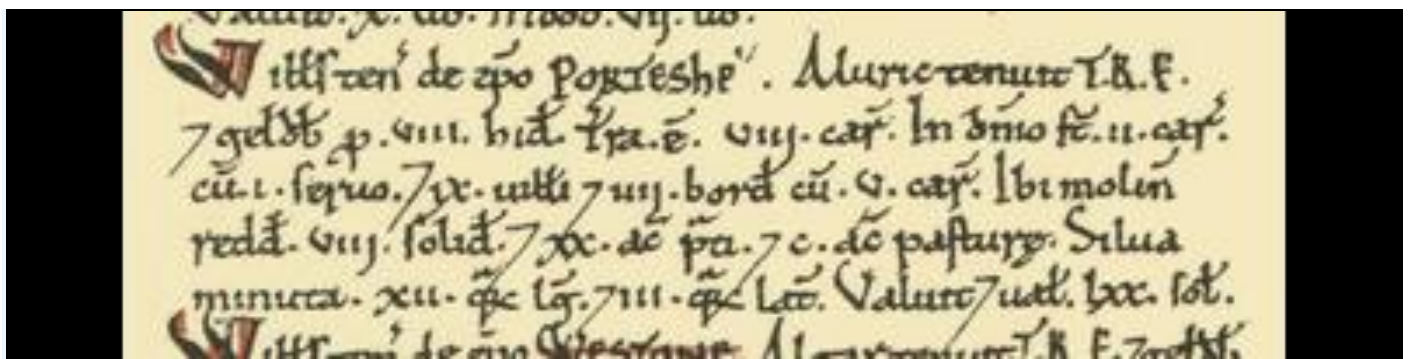 Valuit. x. lib. Modo. vij. lib.
Will's ten' de ep̄o PORTESHE'. Aluric tenuit T.R.E.
⁊ geld̄b p. viii. hid̄. Tr̄a. ē. viij. car̄. In dm̄io st̄. ii. car̄.
cū. i. seruo. ⁊ ix. uilli ⁊ iiij. bord̄ cū. v. car̄. Ibi molin̄
redd̄. viij. solid̄. ⁊ xx. ac̄ p̄ti. ⁊ c. ac̄ pasturę. Silua
minuta. xii. q̄ƶ lḡ. ⁊ iii. q̄ƶ lat̄. Valuit ⁊ ual̄. lxx. sol̄.
Will's ten' de ep̄o WESTONE. Algar tenuit T.R.E. ⁊ geld̄b